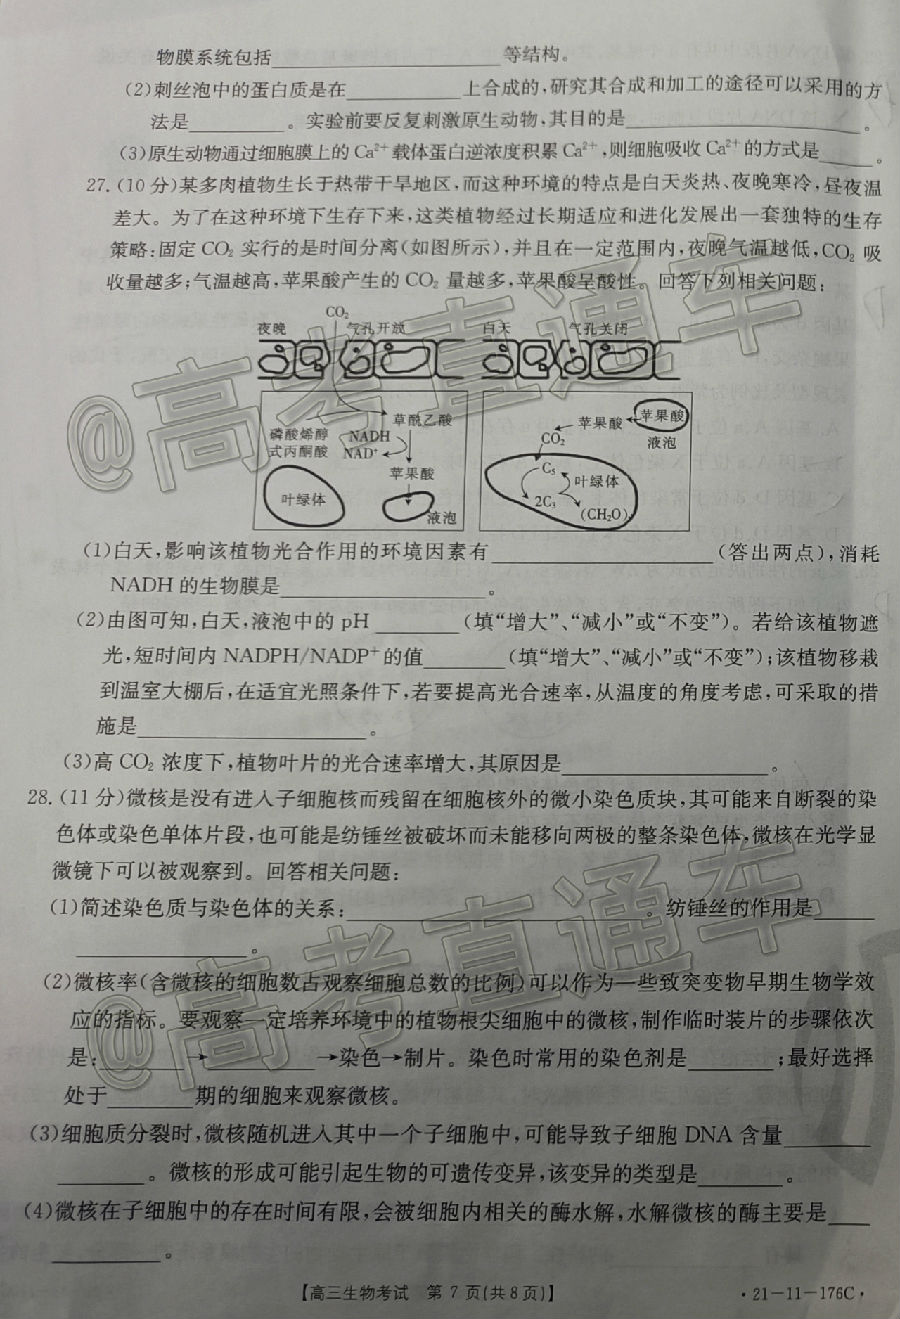 物膜系统包括____________________等结构。
(2)刺丝泡中的蛋白质是在__________上合成的,研究其合成和加工的途径可以采用的方
法是________。实验前要反复刺激原生动物,其目的是____________________。
(3)原生动物通过细胞膜上的Ca²⁺载体蛋白逆浓度积累Ca²⁺,则细胞吸收Ca²⁺的方式是_____。
27.(10分)某多肉植物生长于热带干旱地区,而这种环境的特点是白天炎热、夜晚寒冷,昼夜温
差大。为了在这种环境下生存下来,这类植物经过长期适应和进化发展出一套独特的生存
策略:固定CO₂实行的是时间分离(如图所示),并且在一定范围内,夜晚气温越低,CO₂吸
收量越多;气温越高,苹果酸产生的CO₂量越多,苹果酸呈酸性。回答下列相关问题:
CO₂
夜晚 气孔开放 白天 气孔关闭
草酰乙酸
磷酸烯醇
式丙酮酸
NADH
NAD⁺
苹果酸
叶绿体
液泡
苹果酸 苹果酸
液泡
CO₂
C₅
叶绿体
2C₃
(CH₂O)
(1)白天,影响该植物光合作用的环境因素有____________________(答出两点),消耗
NADH的生物膜是__________________。
(2)由图可知,白天,液泡中的pH________(填“增大”、“减小”或“不变”)。若给该植物遮
光,短时间内NADPH/NADP⁺的值________(填“增大”、“减小”或“不变”);该植物移栽
到温室大棚后,在适宜光照条件下,若要提高光合速率,从温度的角度考虑,可采取的措
施是____________________。
(3)高CO₂浓度下,植物叶片的光合速率增大,其原因是__________________。
28.(11分)微核是没有进入子细胞核而残留在细胞核外的微小染色质块,其可能来自断裂的染
色体或染色单体片段,也可能是纺锤丝被破坏而未能移向两极的整条染色体,微核在光学显
微镜下可以被观察到。回答相关问题:
(1)简述染色质与染色体的关系:__________________________。纺锤丝的作用是______
________________。
(2)微核率(含微核的细胞数占观察细胞总数的比例)可以作为一些致突变物早期生物学效
应的指标。要观察一定培养环境中的植物根尖细胞中的微核,制作临时装片的步骤依次
是:__________→__________→染色→制片。染色时常用的染色剂是________;最好选择
处于________期的细胞来观察微核。
(3)细胞质分裂时,微核随机进入其中一个子细胞中,可能导致子细胞DNA含量________
________。微核的形成可能引起生物的可遗传变异,该变异的类型是________。
(4)微核在子细胞中的存在时间有限,会被细胞内相关的酶水解,水解微核的酶主要是____
__________。
【高三生物考试 第7页(共8页)】 ·21-11-176C·
@高考直通车
@高考直通车